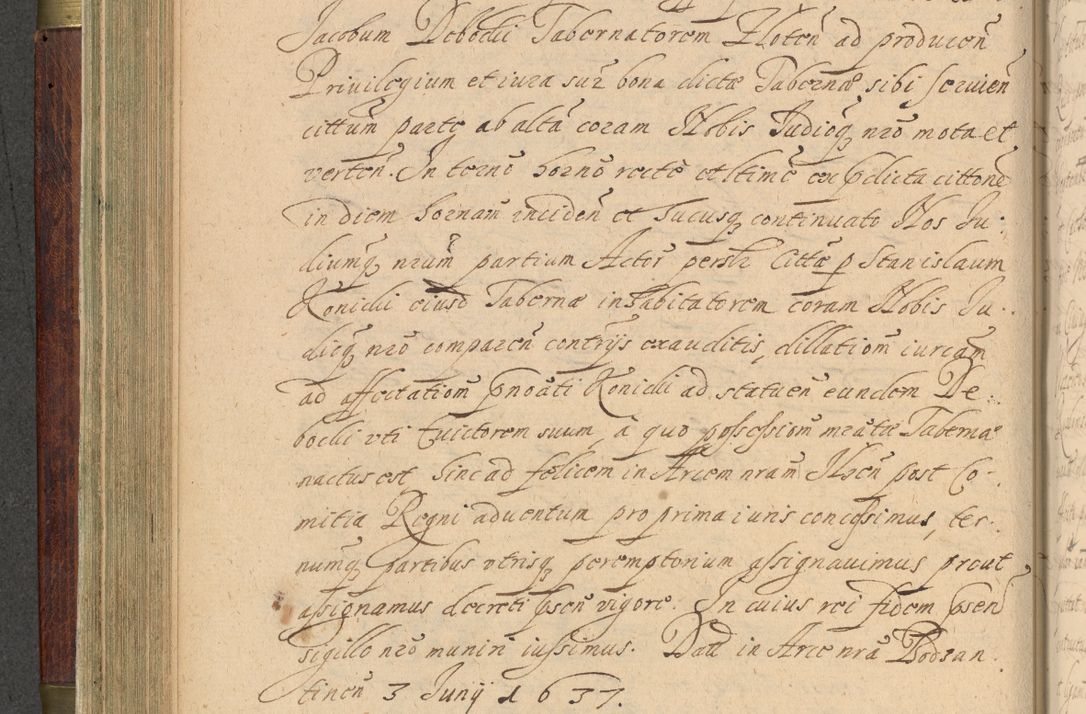 Jacobum Debocki Tabernatorem Zloten̄ ad producen̄
Priuilegium et iura sua bona dictæ Tabernæ sibi seruien̄
cittum̄ parte ab altā coram Nobis Judioq̨ nr̄o mota et
verten̄. In termō hornō recte et ltime ex p̄dicta cittone
in diem hornam inciden̄ et hucusq̨ continuato Nos Ju:
dicumq̨ nrum̄ partium Actor̄ persl̄r Cittæ p Stanislaum
Konicki eiusd̄ Tabernæ inhabitatorem coram Nobis Ju:
dicq̨ nr̄o comparen̄ contrīs exauditis, dillationem̄ iuream
ad affectation̄ p̄noāti Konicki ad statuen̄ eundem De:
bocki vti Euictorem suum, a quo possession̄ mr̄atæ Tabernæ
nactus est, hinc ad felicem in Arcem nram̄ Nr̄en̄ post Co-
mitia Regni aduentum pro prima iuris concessimus, ter:
numq̨ partibus vtrisq̨ peremptorium assignauimus prout
assignamus decreti p̄sen̄ vigore. In cuius rei fidem p̄sen̄
sigillo nr̄o muniri iussimus. Datt in Arce nr̄a Bodzan:
tinen̄ 3 Junij 1637.